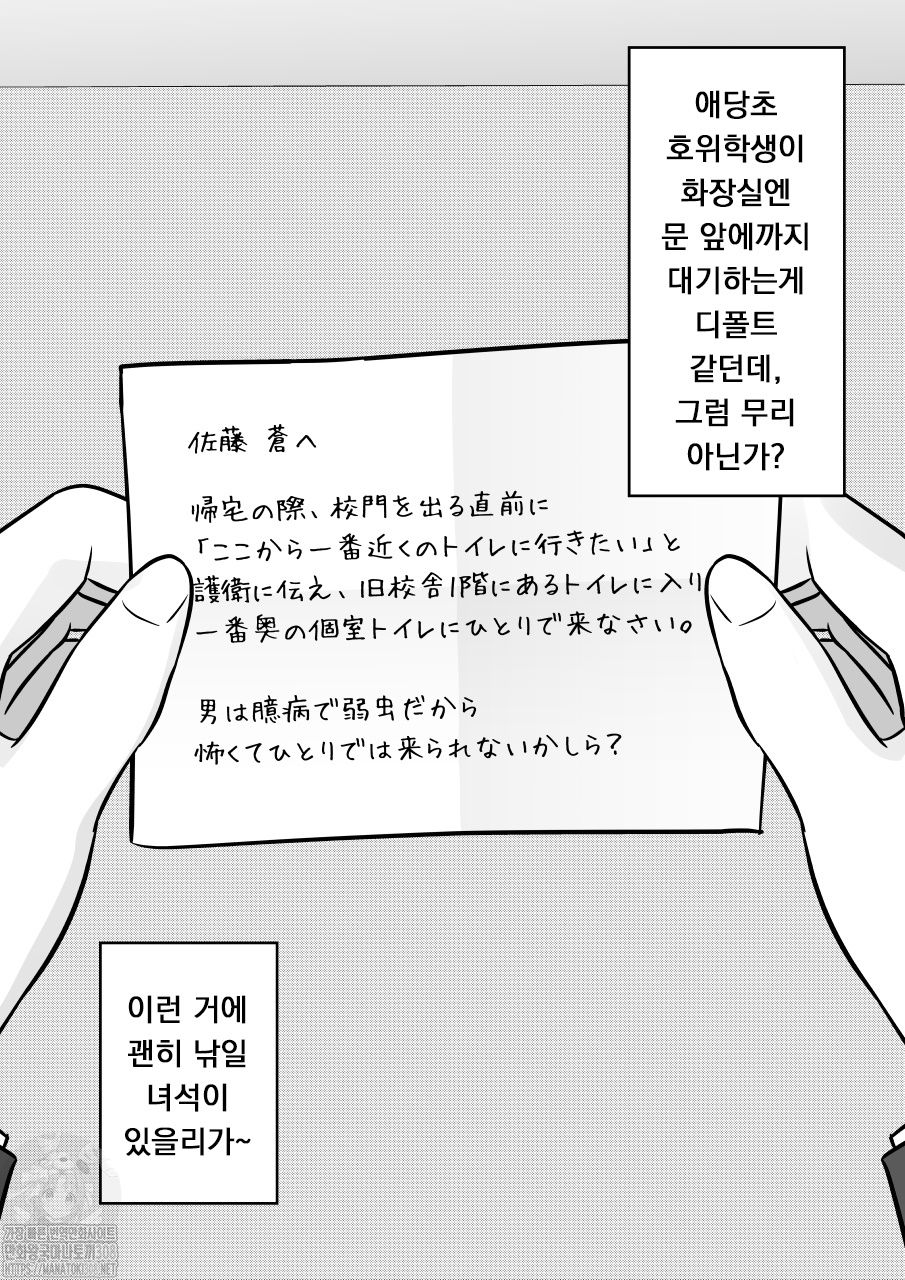 애당초
호위학생이
화장실엔
문 앞에까지
대기하는게
디폴트
같던데,
그럼 무리
아닌가?
佐藤 蒼へ
帰宅の際、校門を出る直前に
「ここから一番近くのトイレに行きたい」と
護衛に伝え、旧校舎1階にあるトイレに入り
一番奥の個室トイレにひとりで来なさい。
男は臆病で弱虫だから
怖くてひとりでは来られないかしら?
이런 거에
괜히 낚일
녀석이
있을리가~
가장 빠른 번역만화사이트
만화왕국마나토끼308
HTTPS://MANATOKI308.NET